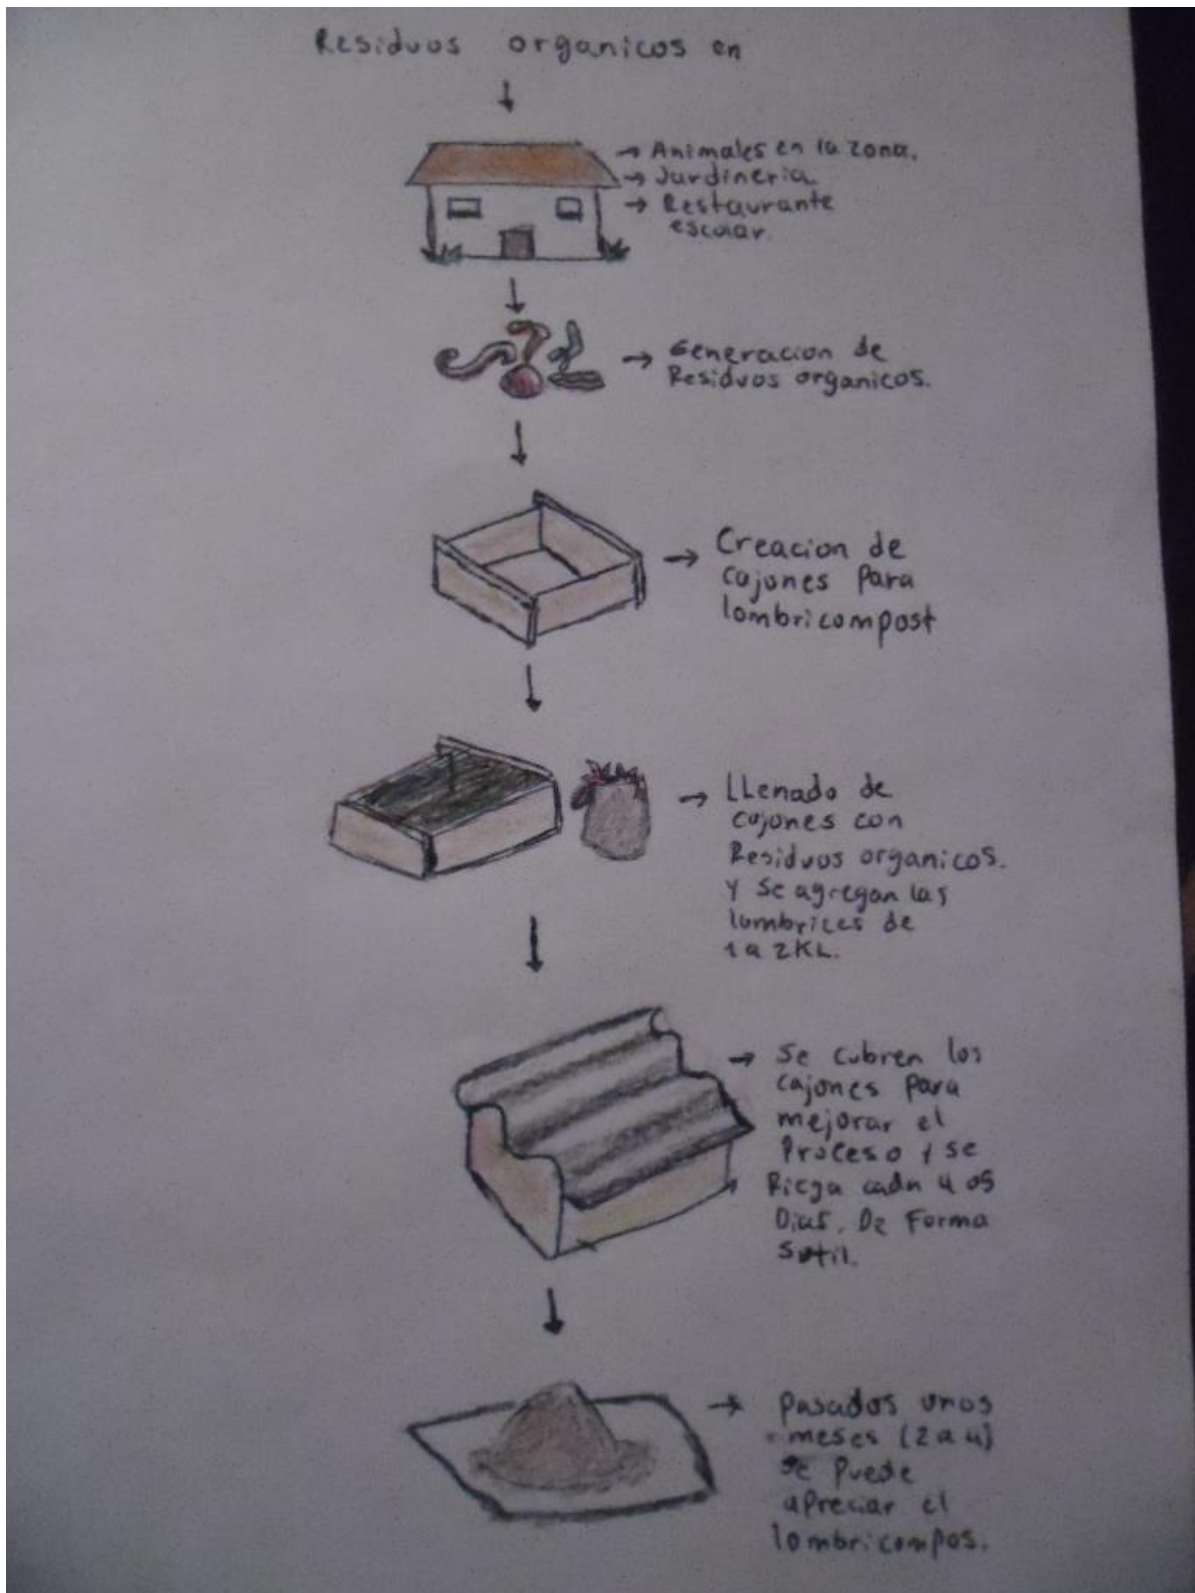 Residuos organicos en
→ Animales en la zona.
→ Jardineria.
→ Restaurante
escolar.
→ Generacion de
Residuos organicos.
→ Creacion de
cajones Para
lombricompost
→ LLenado de
cajones con
Residuos organicos.
Y se agregan las
lombrices de
1 a 2 KL.
→ Se cubren los
cajones para
mejorar el
Proceso y se
Riega cada 4 o 5
Dias. De Forma
sutil.
→ Pasados unos
meses (2 a 4)
se Puede
apreciar el
lombricompos.